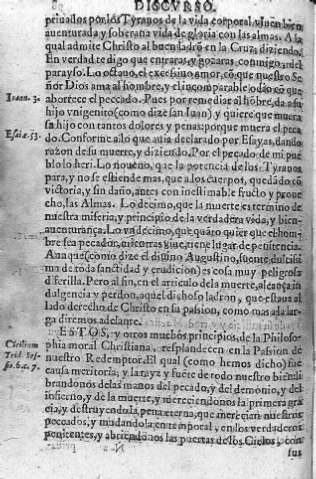 DISCVRSO.
priuallos por los Tyranos de la vida corporal, viuen bien
auenturada y soberana vida de gloria con las almas. A la
qual admite Christo al buen ladrõ en la Cruz, diziendo.
En verdad te digo que entraras, y gozaras conmigo, del
parayso. Lo octauo, el excessiuo amor, cõ que nuestro Se
ñor Dios ama al hombre, y el incomparable odio cõ que
Ioan. 3. aborrece el peccado. Pues por remediar al hõbre, da a su
hijo vnigenito (como dize san Iuan) y quiere que muera
su hijo con tantos dolores y penas: porque muera el pe
Esai. 53. cado. Conforme a lo que auia declarado por Esayas, dando
razon de su muerte, y diziendo. Por el peccado de mi pue
blo lo heri. Lo noueno, que la potencia de los Tyranos
para, y no se estiende mas, que a los cuerpos, quedãdo cõ
victoria, y sin daño, antes con inestimable fructo y proue
cho, las Almas. Lo decimo, que la muerte es termino de
nuestra miseria, y principio de la verdadera vida, y bien
auenturança. Lo vndecimo, que quãto quier que el hom
bre sea pecador, mientras viue, tiene lugar de penitencia.
Aunque (como dize el diuino Augustino, fuente dulcissi
ma de toda sanctidad y erudicion) es cosa muy peligrosa
diferilla. Pero al fin, en el articulo de la muerte, alcança in
dulgencia y perdon, aquel dichoso ladron, que estaua al
lado derecho de Christo en su pasion, como mas a la lar
ga diremos adelante.
ESTOS, y otros muchos principios, de la Philoso-
phia moral Christiana, resplandecen en la Passion de
Concilium nuestro Redemptor. El qual (como hemos dicho) fue
Trid. Ses- causa meritoria, y la rayz y fuẽte de todo nuestro bien: li
sio. 6. c. 7. brandonos de las manos del pecado, y del demonio, y del
infierno, y de la muerte, y mereciendonos la primera gra
cia, y destruyendo la pena eterna, que merecian nuestros
peccados, y mudandola en temporal, en los verdaderos
penitentes, y abriendonos las puertas de los Cielos, con
sus